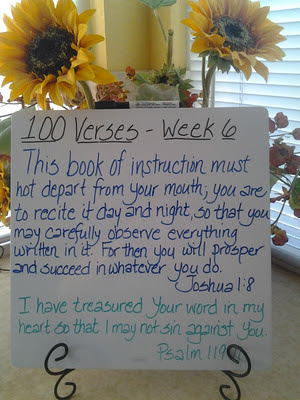 100 Verses - Week 6
This book of instruction must
not depart from your mouth; you are
to recite it day and night, so that you
may carefully observe everything
written in it. For then you will prosper
and succeed in whatever you do.
Joshua 1:8
I have treasured your word in my
heart so that I may not sin against you.
Psalm 119